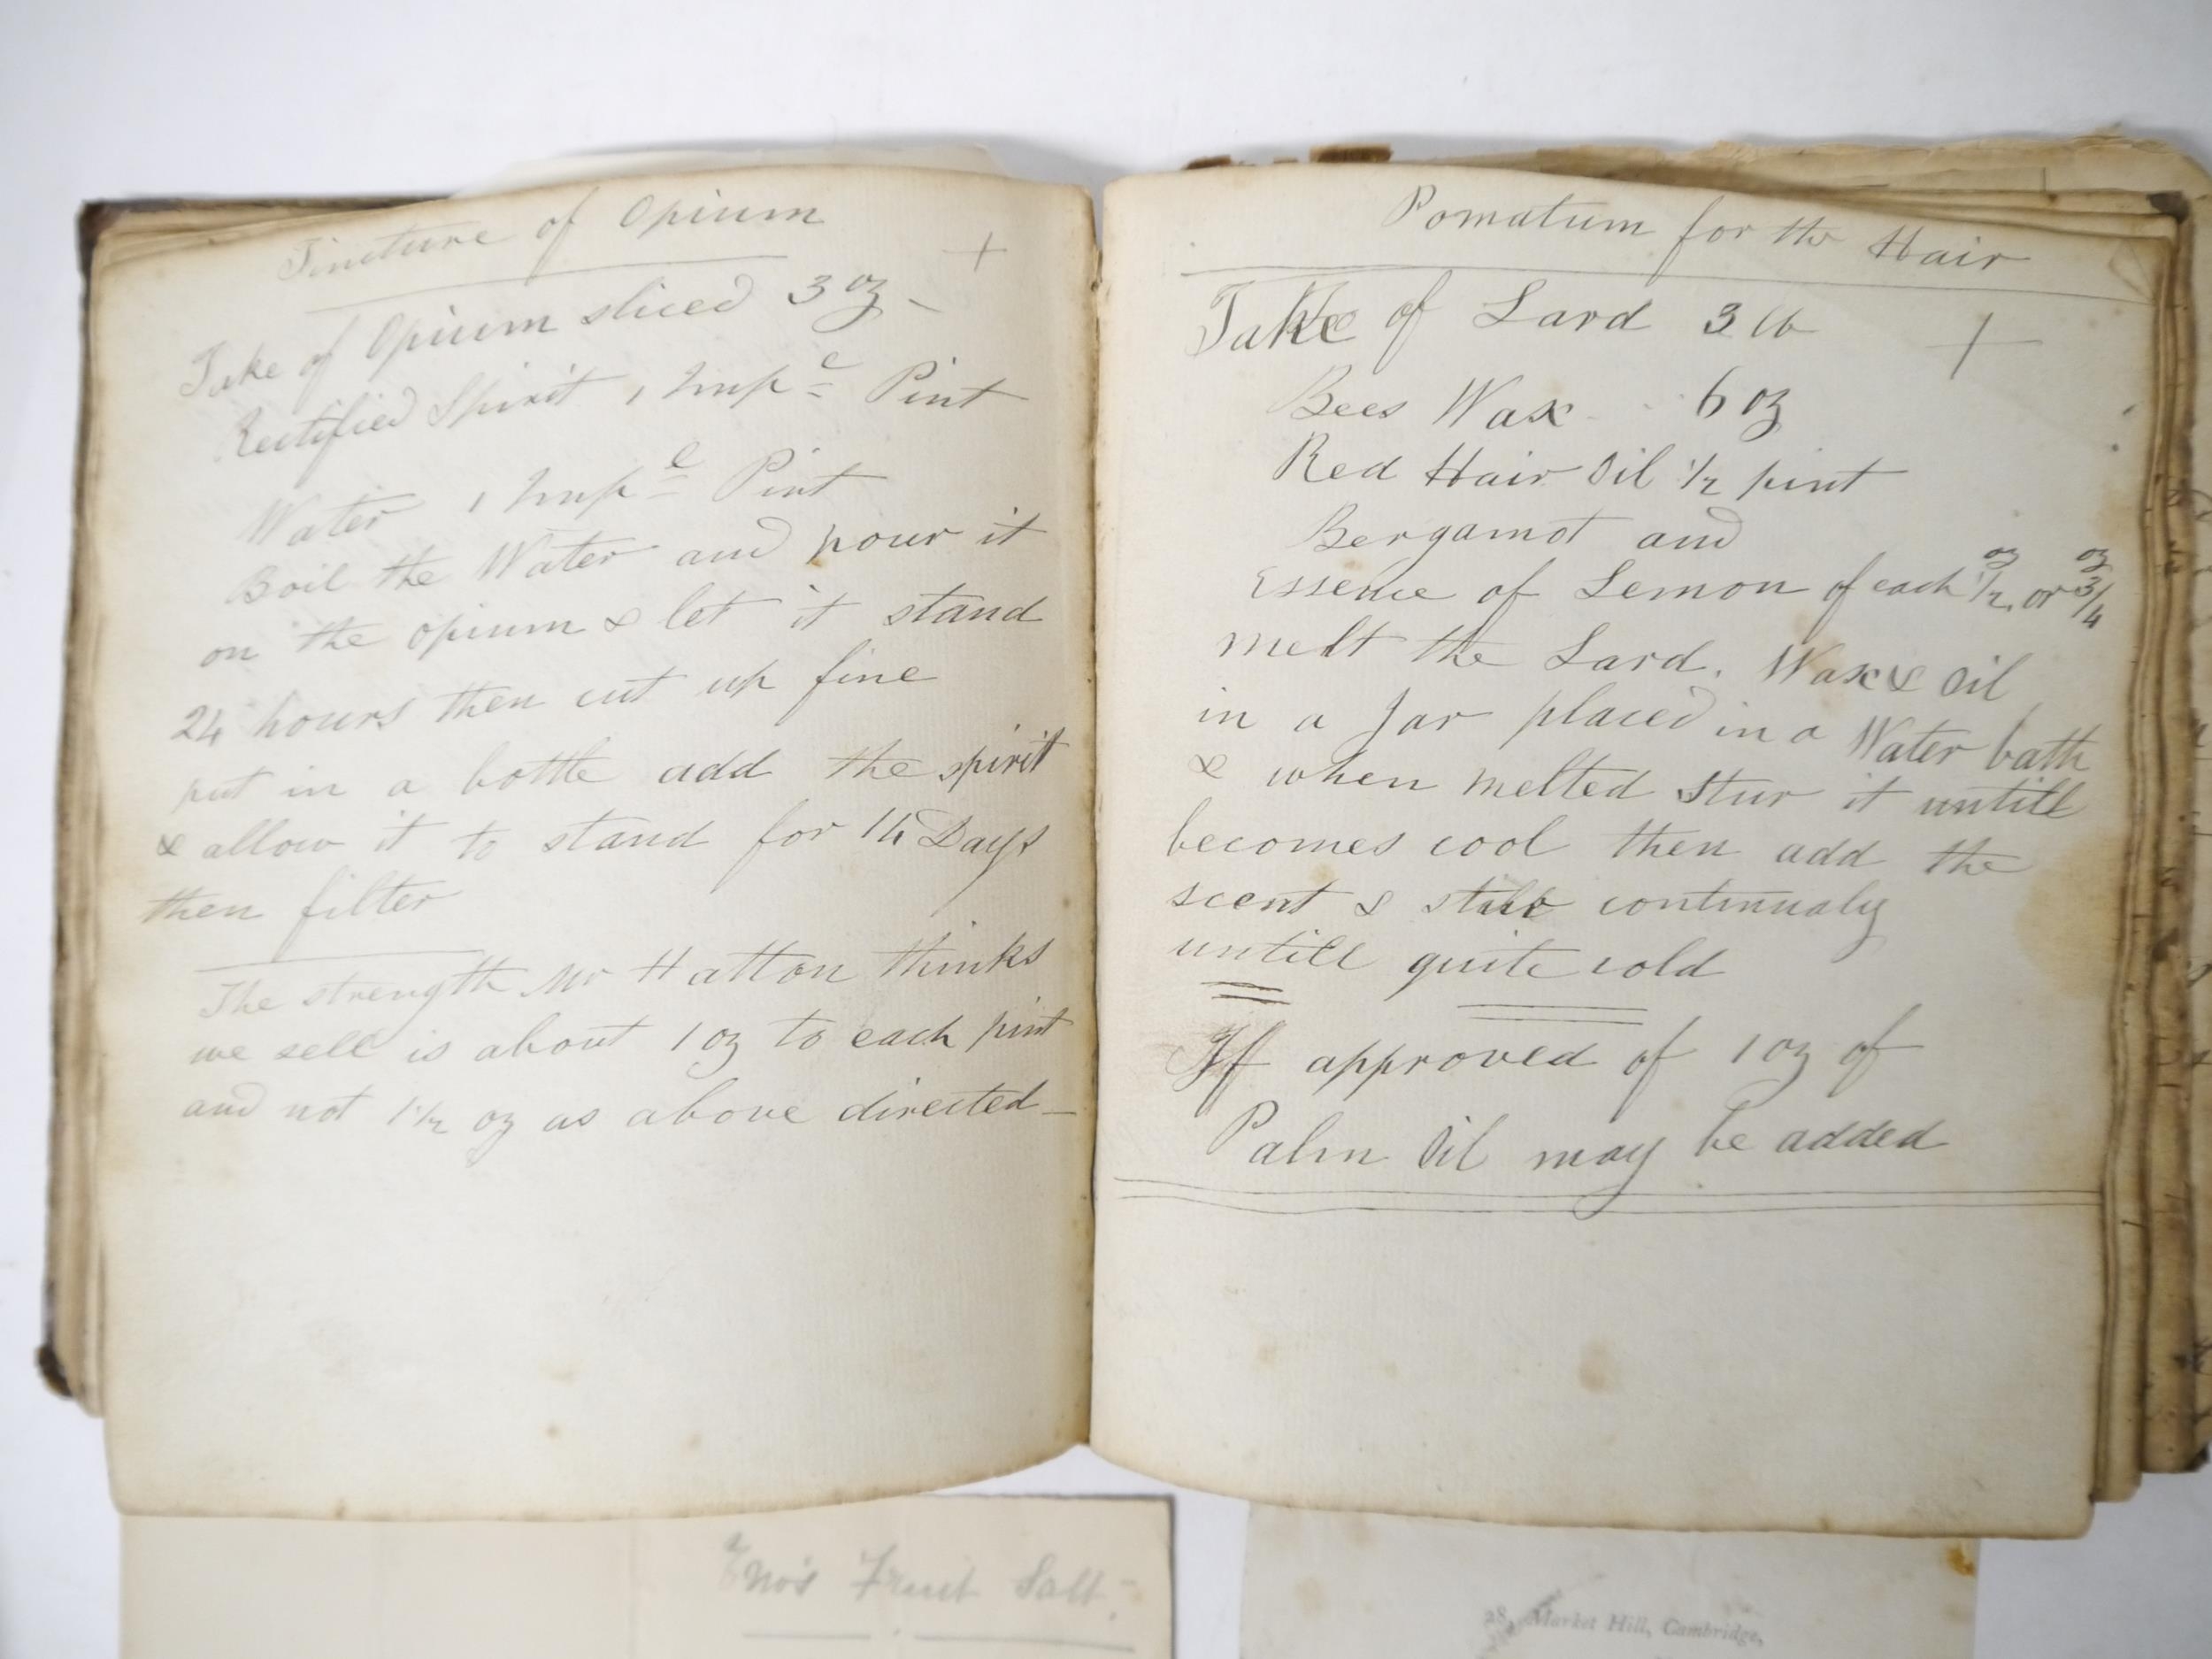 Tincture of Opium
+
Take of Opium sliced 3 oz -
Rectified Spirit 1 Imp^e Pint
Water 1 Imp^e Pint
Boil the Water and pour it
on the opium & let it stand
24 hours then cut up fine
put in a bottle add the spirit
& allow it to stand for 14 Days
then filter
The strength Mr Hatton thinks
we sell is about 1 oz to each pint
and not 1 1/2 oz as above directed -
Pomatum for the Hair
Take of Lard 3 lb
+
Bees Wax - - 6 oz
Red Hair Oil 1/2 pint
Bergamot and
Essence of Lemon of each 1/2 oz or 3/4 oz
melt the Lard. Wax & Oil
in a Jar placed in a Water bath
& when melted stur it untill
becomes cool then add the
scent & continualy
untill quite cold
If approved of 1 oz of
Palm Oil may be added
Eno's Fruit Salt.-
28, Market Hill, Cambridge,